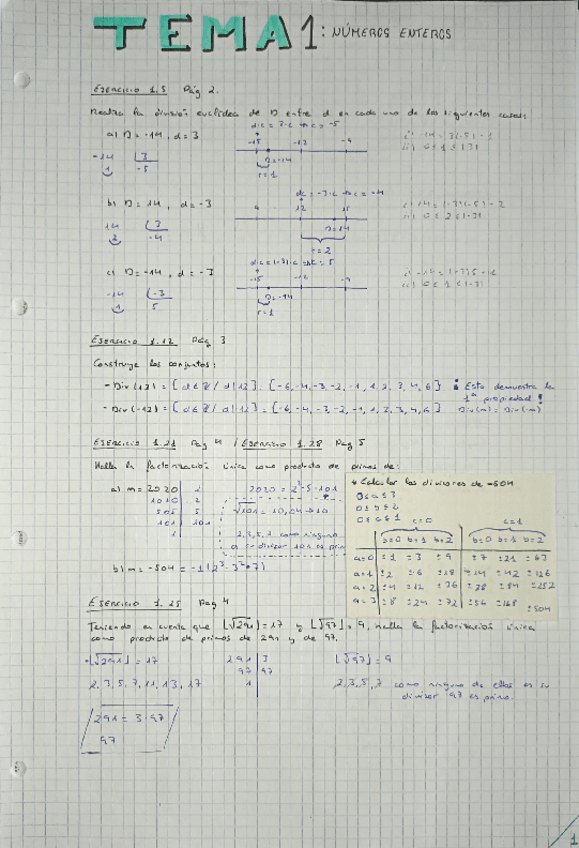 TEMA 1: NÚMEROS ENTEROS
EJERCICIO 1.5 Pág 2.
Realiza la división euclídea de D entre d en cada uno de los siguientes casos:
a) D = -14, d = 3
d·c = 3·c → c = -5
-15 -12 -9
D=-14
r = 1
-14 | 3
1 -5
b) D = 14, d = -3
dc = -3·c → c = -4
12 15
D=14
r = 2
14 | 3
2 -4
c) D = -14, d = -3
-15 -12 -9
D=-14
r = 1
-14 | -3
1 5
EJERCICIO 1.12 Pág 3
Construye los conjuntos:
- Div(12) = { d ∈ Z / d | 12 } = { -6, -4, -3, -2, -1, 1, 2, 3, 4, 6 }
- Div(-12) = { d ∈ Z / d | 12 } = { -6, -4, -3, -2, -1, 1, 2, 3, 4, 6 }
¡ Esto demuestra la
1ª propiedad !
Div(m) = Div(-m)
EJERCICIO 1.21 Pág 4 / EJERCICIO 1.28 Pág 5
Halla la factorización única como producto de primos de:
a) m = 2020 | 2
1010 | 2
505 | 5
101 | 101
1
2020 = 2²·5·101
√101 = 10,04 → 10
2, 3, 5, 7 como ninguno
es divisor 101 es prim
b) m = -504 = -1(2³·3²·7)
* Calcular los divisores de -504
0≤a≤3
0≤b≤2
0≤c≤1
c=0 c=1
b=0 b=1 b=2 b=0 b=1 b=2
a=0 ±1 ±3 ±9 ±7 ±21 ±63
a=1 ±2 ±6 ±18 ±14 ±42 ±126
a=2 ±4 ±12 ±36 ±28 ±84 ±252
a=3 ±8 ±24 ±72 ±56 ±168 ±504
EJERCICIO 1.25 Pág 4
Teniendo en cuenta que ⌊√291⌋ = 17 y ⌊√97⌋ = 9, halla la factorización única
como producto de primos de 291 y de 97.
·⌊√291⌋ = 17
2, 3, 5, 7, 11, 13, 17
291 | 3
97 | 97
1
⌊√97⌋ = 9
2, 3, 5, 7 como ninguno de ellos es su
divisor 97 es primo.
291 = 3·97
97
1